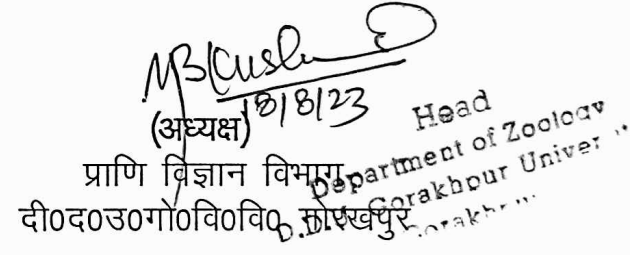 18/8/23
(अध्यक्ष)
प्राणि विज्ञान विभाग
दी0द0उ0गो0वि0वि0, गोरखपुर
Head
Department of Zoology
D.D.U. Gorakhpur Univer